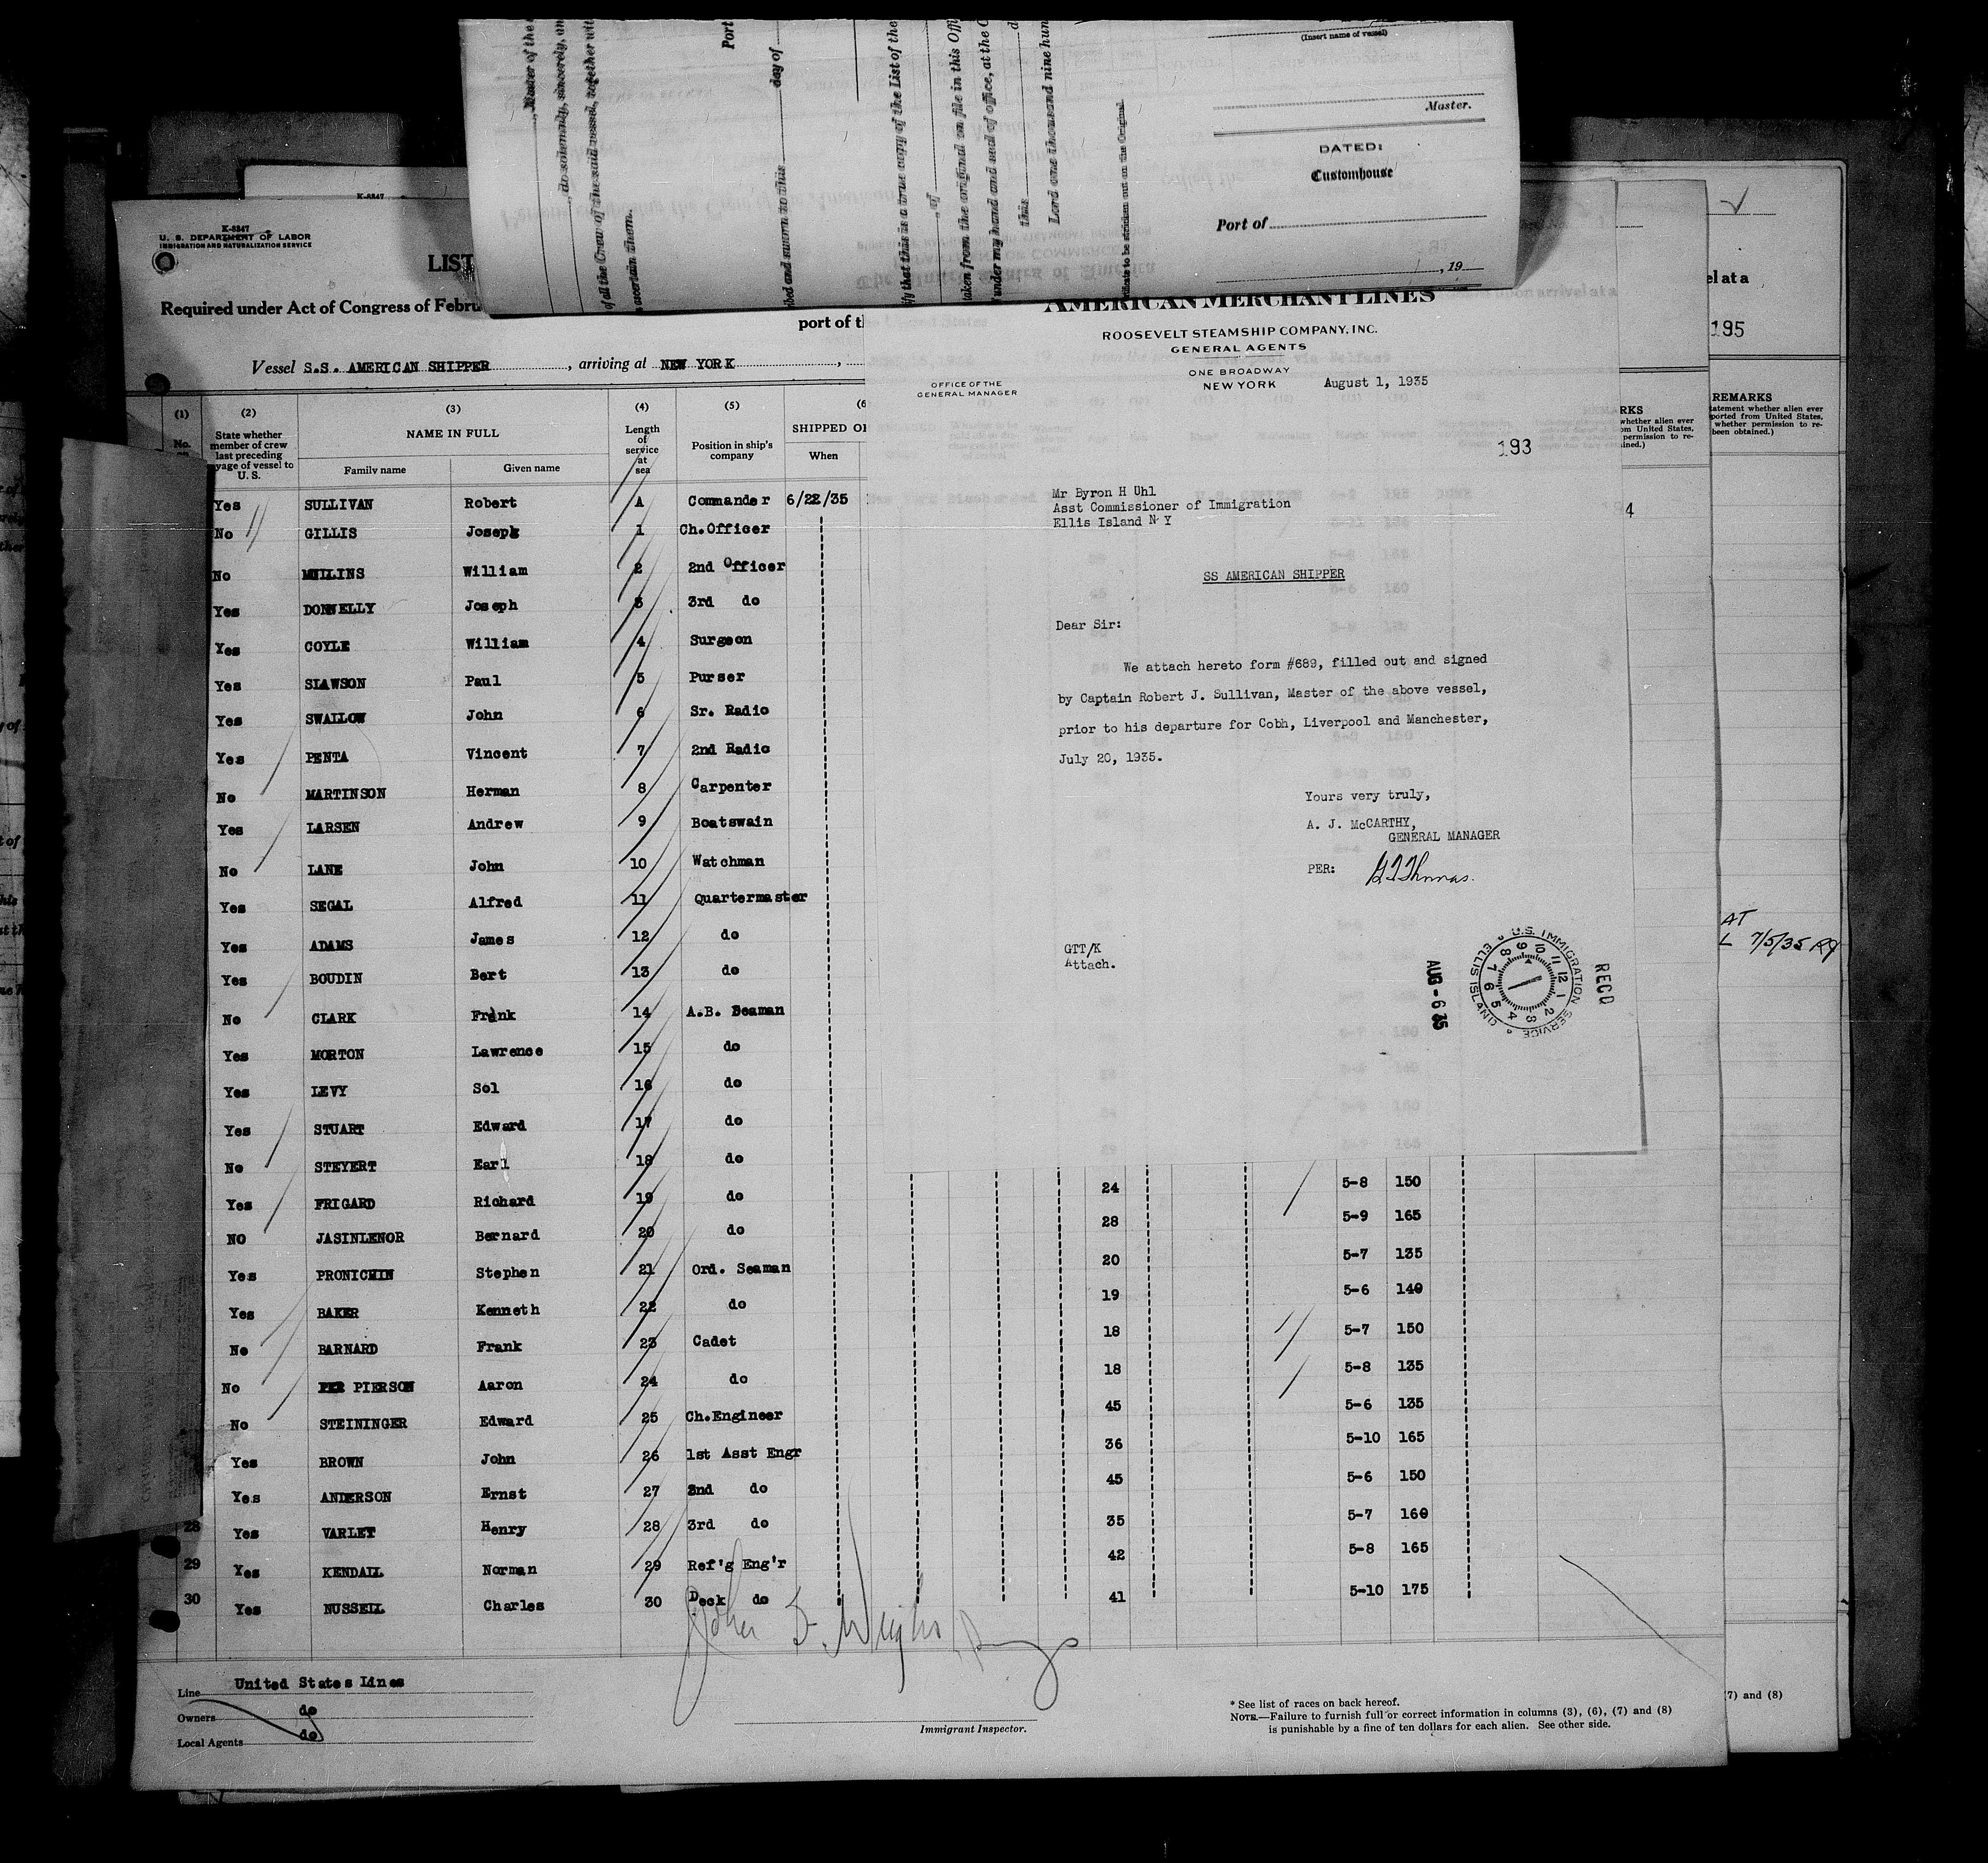 (Insert name of vessel)
Master.
DATED:
Customhouse
Port of
, 19
Master of the
, do solemnly, sincerely, an
of all the Crew of the said vessel, together wit
ascertain them.
Port
day of
ibed and sworn to this
ify that this is a true copy of the List of the
, of
taken from the original on file in this Offi
under my hand and seal of office, at the C
this
d
Lord one thousand nine hun
to be stricken out on the Original
K-8847
K-8847
U. S. DEPARTMENT OF LABOR
IMMIGRATION AND NATURALIZATION SERVICE
LIST
Required under Act of Congress of Febru
port of t
Vessel S.S. AMERICAN SHIPPER, arriving at NEW YORK,
(1) (2) (3) (4) (5) (6
No.
State whether member of crew last preceding voyage of vessel to U. S.
NAME IN FULL
Family name Given name
Length of service at sea
Position in ship's company
SHIPPED O
When
Yes SULLIVAN Robert A Commander 6/22/35
No GILLIS Joseph 1 Ch.Officer
No MULLINS William 2 2nd Officer
Yes DONNELLY Joseph 3 3rd do
Yes COYLE William 4 Surgeon
Yes SLAWSON Paul 5 Purser
Yes SWALLOW John 6 Sr. Radio
Yes PENTA Vincent 7 2nd Radio
No MARTINSON Herman 8 Carpenter
Yes LARSEN Andrew 9 Boatswain
No LANE John 10 Watchman
Yes SEGAL Alfred 11 Quartermaster
Yes ADAMS James 12 do
Yes BOUDIN Bert 13 do
No CLARK Frank 14 A.B. Seaman
Yes MORTON Lawrence 15 do
Yes LEVY Sol 16 do
Yes STUART Edward 17 do
No STEYERT Earl 18 do
Yes FRIGARD Richard 19 do 24 5-8 150
NO JASINLENOR Bernard 20 do 28 5-9 165
Yes PRONICHIN Stephen 21 Ord. Seaman 20 5-7 135
Yes BAKER Kenneth 22 do 19 5-6 140
No BARNARD Frank 23 Cadet 18 5-7 150
No PER PIERSON Aaron 24 do 18 5-8 135
No STEININGER Edward 25 Ch.Engineer 45 5-6 135
Yes BROWN John 26 1st Asst Engr 36 5-10 165
Yes ANDERSON Ernst 27 2nd do 45 5-6 150
28 Yes VARLET Henry 28 3rd do 35 5-7 160
29 Yes KENDALL Norman 29 Ref'g Eng'r 42 5-8 165
30 Yes NUSSELL Charles 30 Deck do 41 5-10 175
Line United States Lines
Owners do
Local Agents do
Immigrant Inspector.
* See list of races on back hereof.
NOTE.—Failure to furnish full or correct information in columns (3), (6), (7) and (8)
is punishable by a fine of ten dollars for each alien. See other side.
AMERICAN MERCHANT LINES
ROOSEVELT STEAMSHIP COMPANY, INC.
GENERAL AGENTS
ONE BROADWAY
NEW YORK August 1, 1935
OFFICE OF THE
GENERAL MANAGER
193
Mr Byron H Uhl
Asst Commissioner of Immigration
Ellis Island N Y
SS AMERICAN SHIPPER
Dear Sir:
We attach hereto form #689, filled out and signed
by Captain Robert J. Sullivan, Master of the above vessel,
prior to his departure for Cobh, Liverpool and Manchester,
July 20, 1935.
Yours very truly,
A. J. McCARTHY,
GENERAL MANAGER
PER: GTThomas.
GTT/K
Attach.
AUG - 6 35
U.S. IMMIGRATION SERVICE
ELLIS ISLAND
RECD
el at a
195
REMARKS
4
7/5/35
(7) and (8)